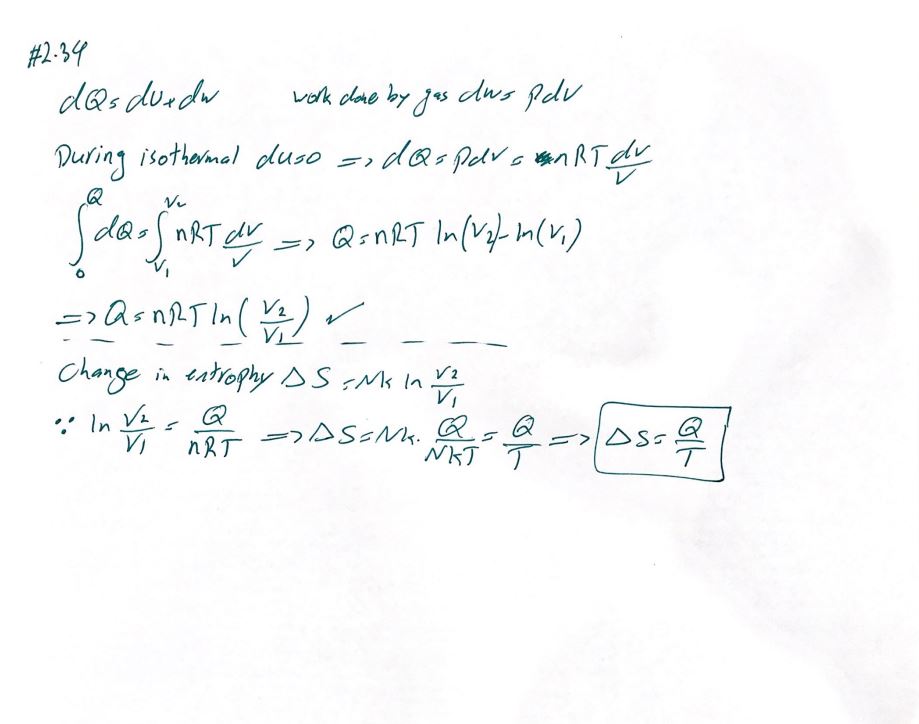 #2.34
dQ = dU + dw work done by gas dw = Pdv
During isothermal du=0 => dQ = Pdv = nRT dv/V
∫₀^Q dQ = ∫_{V₁}^{V₂} nRT dv/V => Q = nRT ln(V₂) - ln(V₁)
=> Q = nRT ln(V₂/V₁) ✓
Change in entrophy ΔS = Nk ln V₂/V₁
∵ ln V₂/V₁ = Q/nRT => ΔS = Nk · Q/NkT = Q/T => ΔS = Q/T